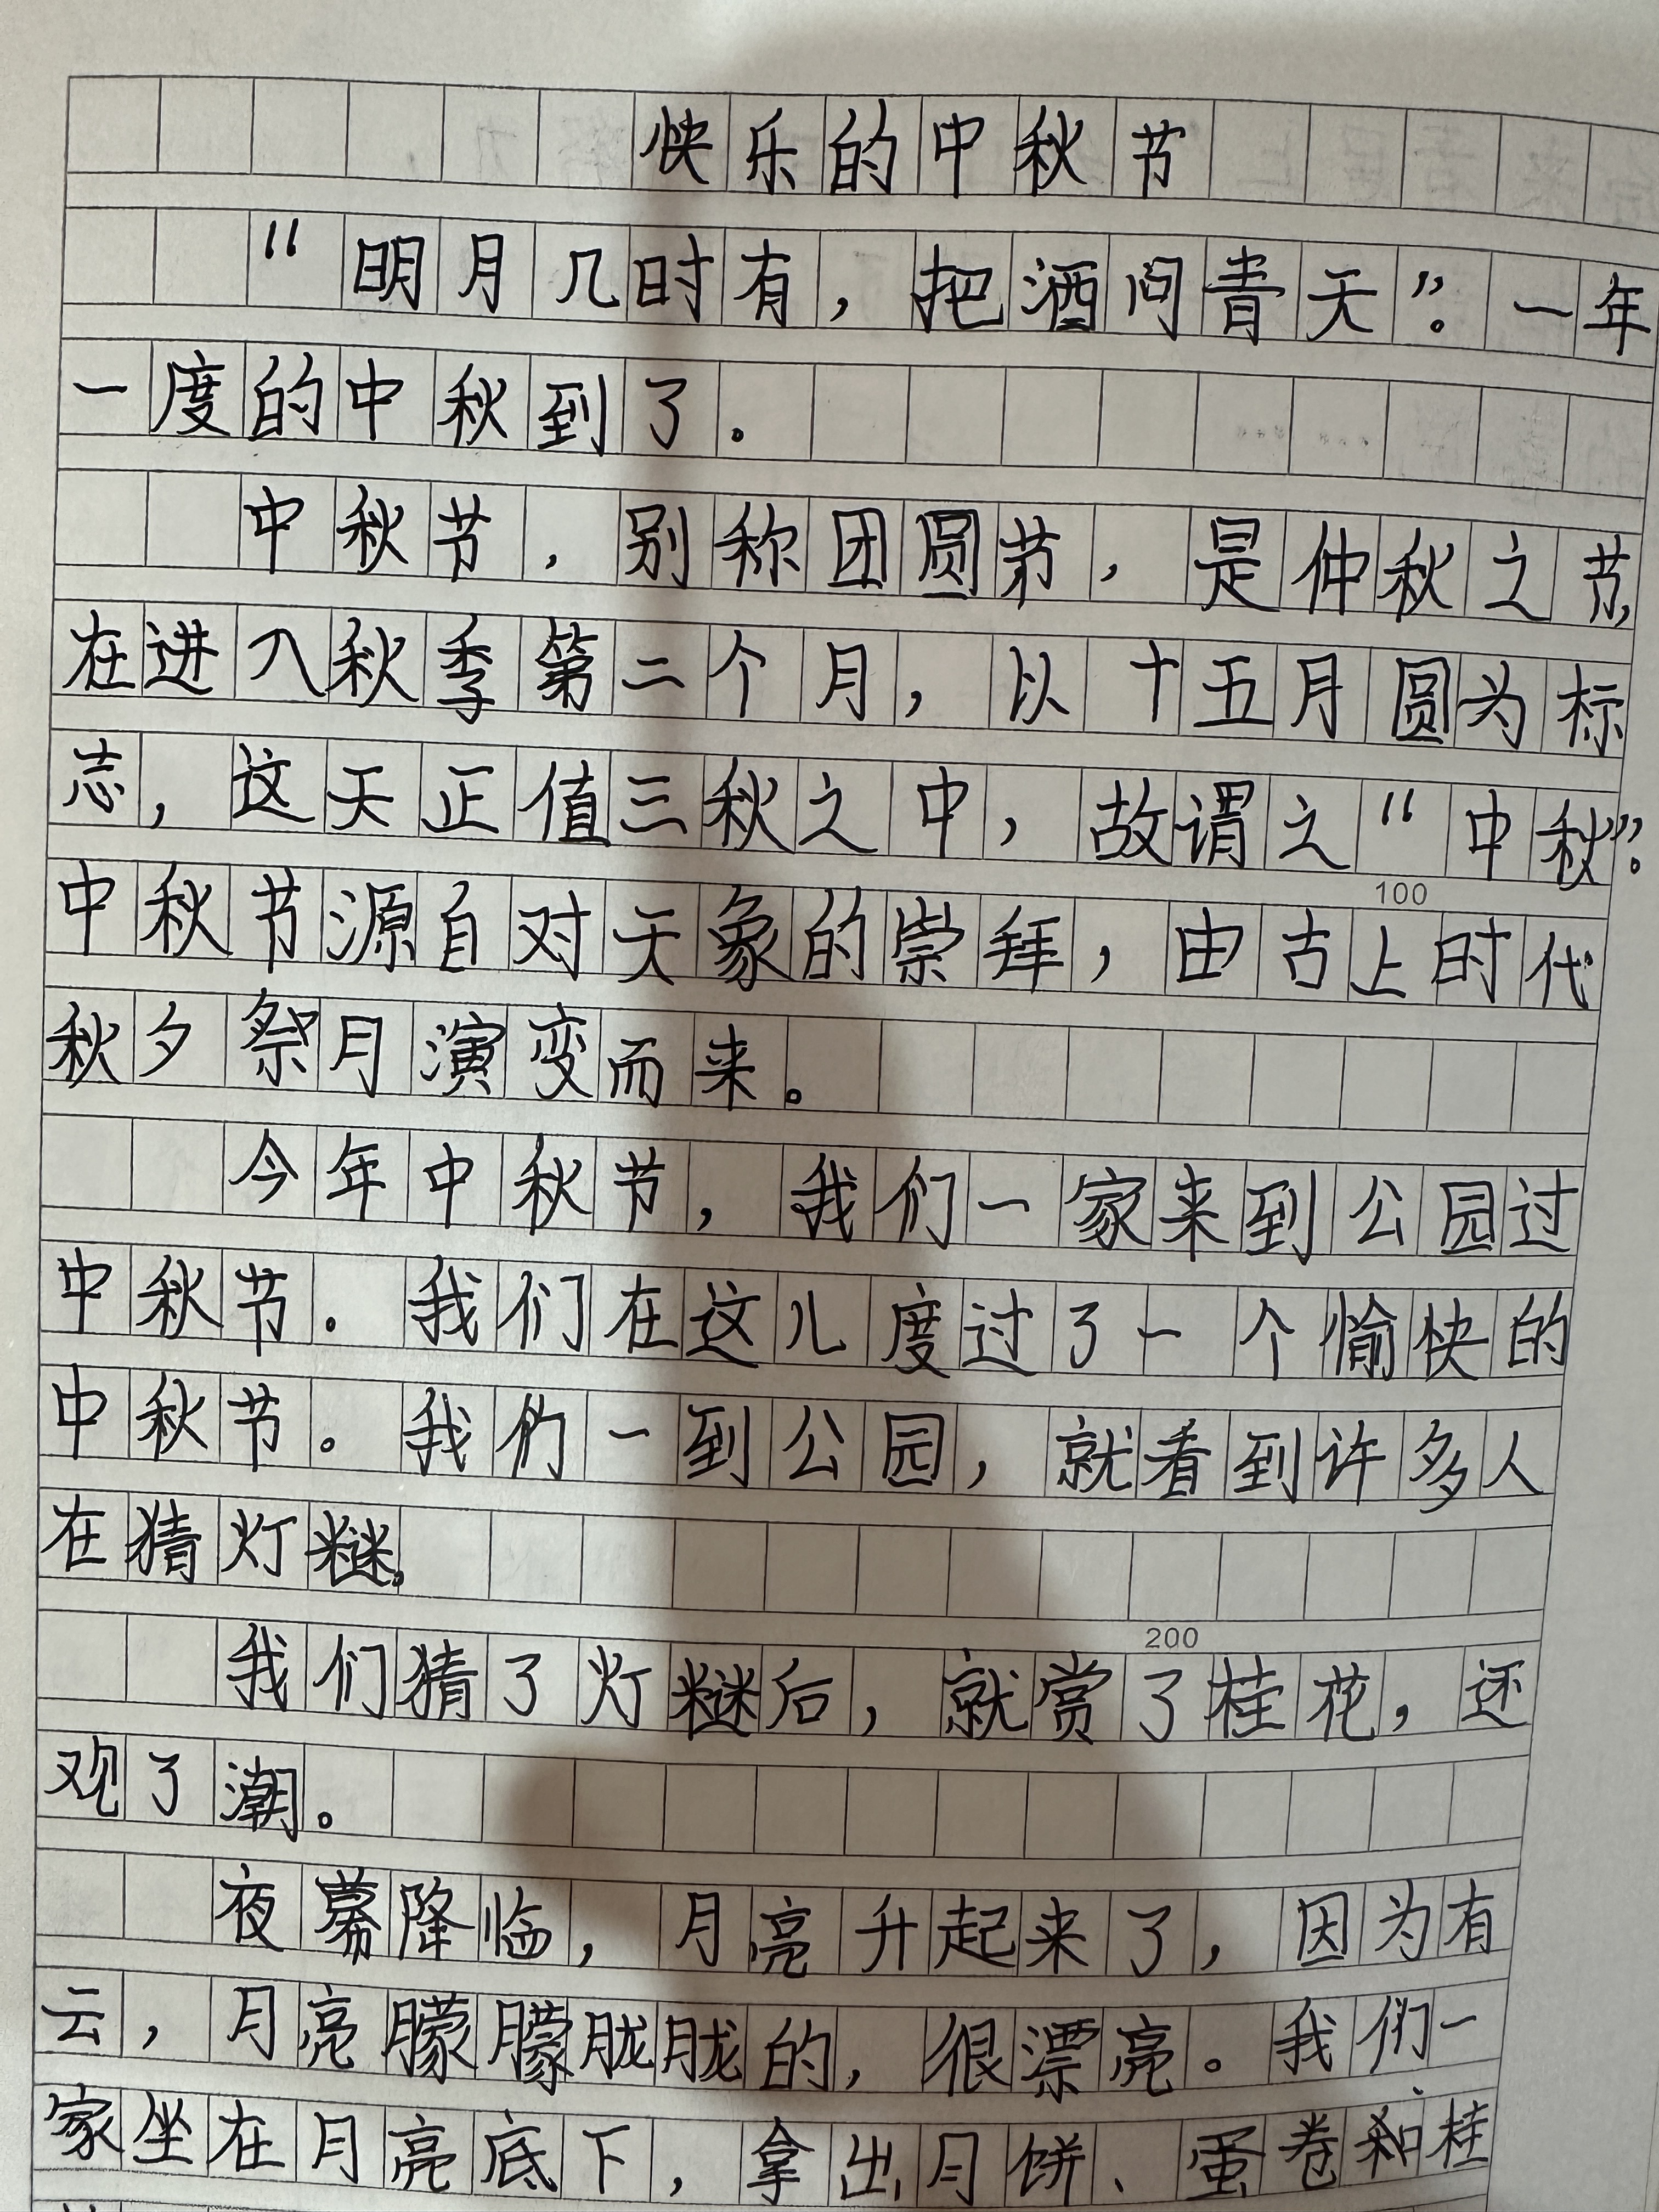 快乐的中秋节
“明月几时有，把酒问青天”。一年
一度的中秋到了。
中秋节，别称团圆节，是仲秋之节，
在进入秋季第二个月，以十五月圆为标
志，这天正值三秋之中，故谓之“中秋”。
100
中秋节源自对天象的崇拜，由古上时代
秋夕祭月演变而来。
今年中秋节，我们一家来到公园过
中秋节。我们在这儿度过了一个愉快的
中秋节。我们一到公园，就看到许多人
在猜灯谜。
200
我们猜了灯谜后，就赏了桂花，还
观了潮。
夜幕降临，月亮升起来了，因为有
云，月亮朦朦胧胧的，很漂亮。我们一
家坐在月亮底下，拿出月饼、蛋卷和桂